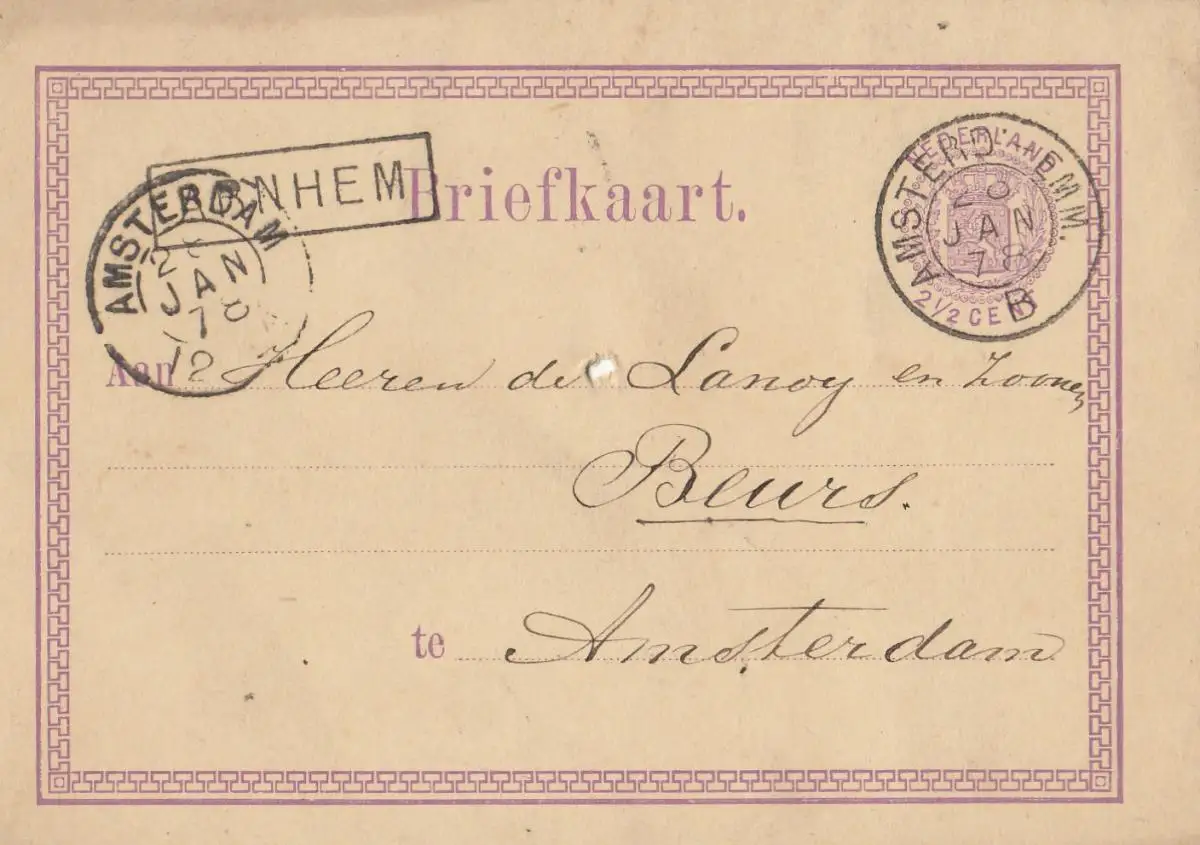 Briefkaart.
ARNHEM
AMSTERDAM
JAN
78
12
NEDERLAND
2½ CENT
AMSTERD:-EMM.
JAN
78
B
Aan Heeren de Lanoy en Zoonen
Beurs.
te Amsterdam